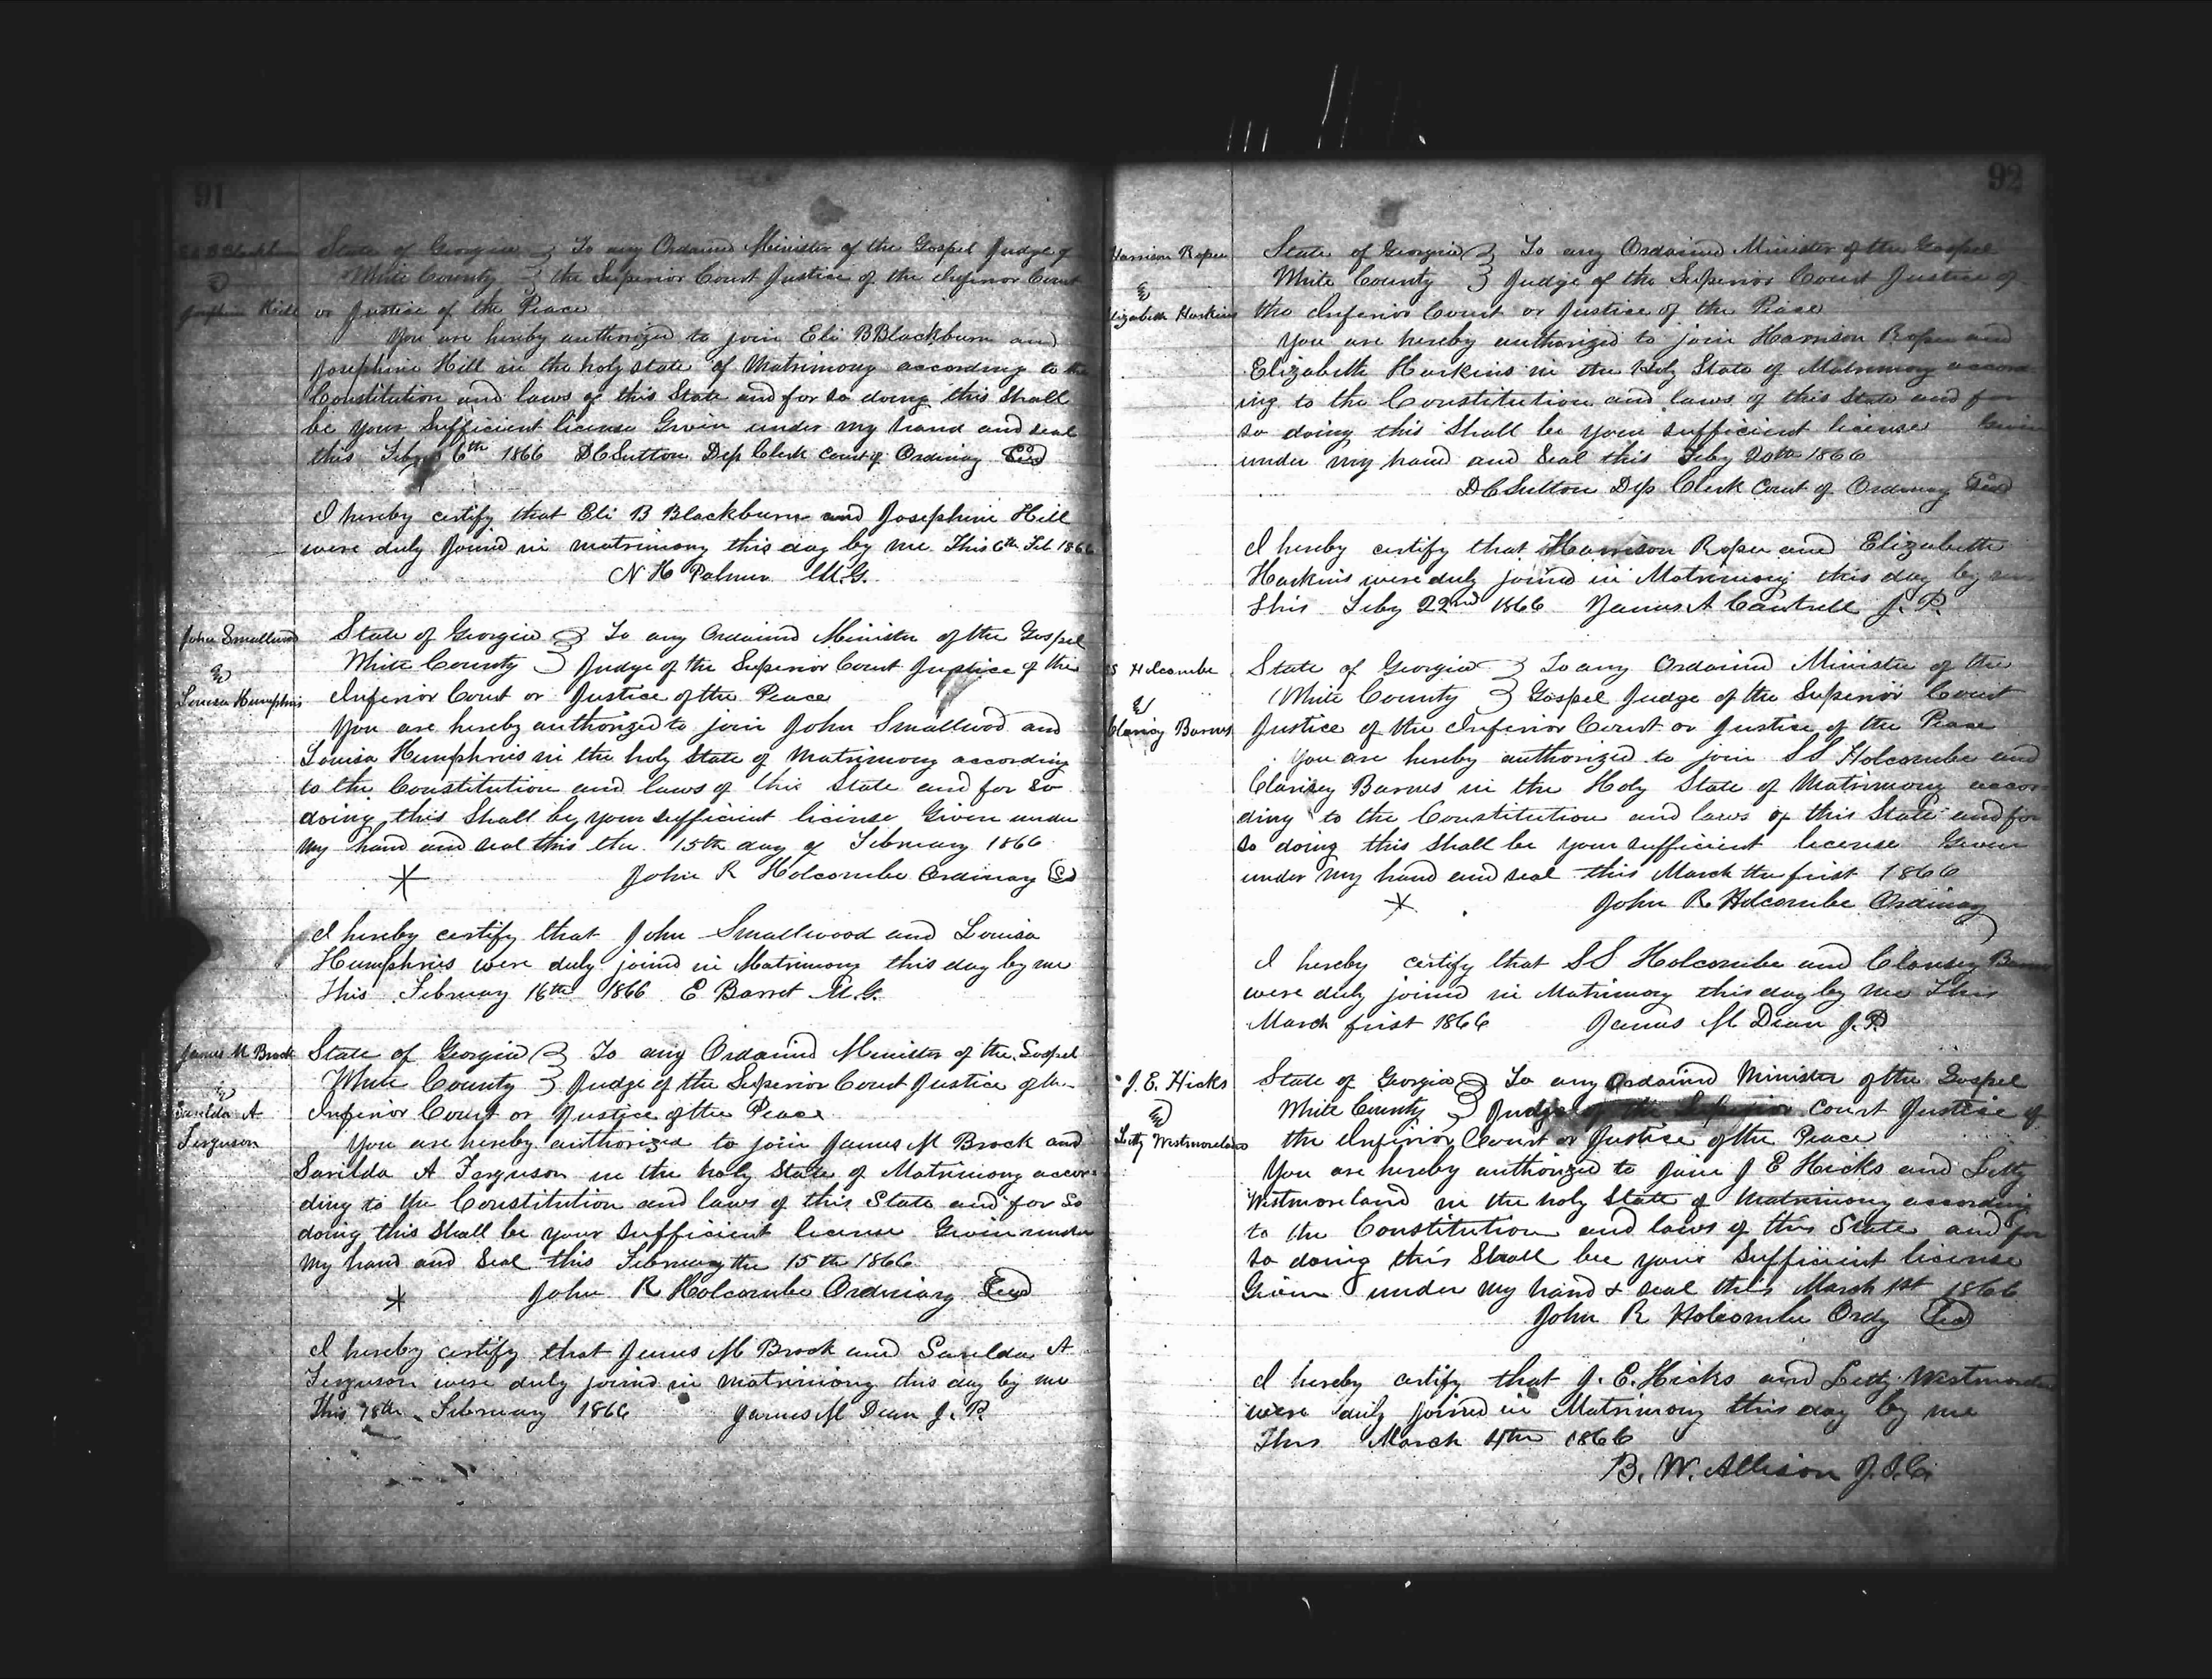 91
Eli B Blackburn
&
Josephine Hill
State of Georgia } To any Ordained Minister of the Gospel Judge of
White County } the Superior Court Justice of the Inferior Court
or Justice of the Peace
You are hereby authorized to join Eli B Blackburn and
Josephine Hill in the holy state of Matrimony according to the
Constitution and laws of this State and for so doing this Shall
be your Sufficient license Given under my hand and seal
this Feby 6th 1866 D C Sutton Dep Clerk Court of Ordinary Seal
I hereby certify that Eli B Blackburn and Josephine Hill
were duly joined in matrimony this day by me This 6th Feb 1866
N H Palmer M.G.
John Smallwood
&
Louisa Humphris
State of Georgia } To any Ordained Minister of the Gospel
White County } Judge of the Superior Court Justice of the
Inferior Court or Justice of the Peace
You are hereby authorized to join John Smallwood and
Louisa Humphris in the holy State of Matrimony according
to the Constitution and laws of this State and for so
doing this Shall be your sufficient license Given under
my hand and seal this the 15th day of February 1866
John R Holcombe Ordinary
I hereby certify that John Smallwood and Louisa
Humphris were duly joined in Matrimony this day by me
This February 16th 1866 E Barret M.G.
James M Brock
&
Sarilda A
Ferguson
State of Georgia } To any Ordained Minister of the Gospel
White County } Judge of the Superior Court Justice of the
Inferior Court or Justice of the Peace
You are hereby authorized to join James M Brock and
Sarilda A Ferguson in the holy State of Matrimony accor-
ding to the Constitution and laws of this State and for so
doing this Shall be your sufficient license Given under
my hand and Seal this February the 15th 1866
John R Holcombe Ordinary Seal
I hereby certify that James M Brock and Sarilda A
Ferguson were duly joined in matrimony this day by me
This 18th February 1866 James M Dean J.P.
92
Harrison Roper
&
Elizabeth Harkins
State of Georgia } To any Ordained Minister of the Gospel
White County } Judge of the Superior Court Justice of
the Inferior Court or Justice of the Peace
You are hereby authorized to join Harrison Roper and
Elizabeth Harkins in the Holy State of Matrimony accord
ing to the Constitution and laws of this State and for
so doing this Shall be your sufficient license Given
under my hand and Seal this Feby 20th 1866
D C Sutton Dep Clerk Court of Ordinary Seal
I hereby certify that Harrison Roper and Elizabeth
Harkins were duly joined in Matrimony this day by me
This Feby 22nd 1866 James A Cantrell J.P.
S Holcombe
&
Clarisy Barnes
State of Georgia } To any Ordained Minister of the
White County } Gospel Judge of the Superior Court
Justice of the Inferior Court or Justice of the Peace
You are hereby authorized to join S S Holcombe and
Clarisey Barnes in the Holy State of Matrimony accor
ding to the Constitution and laws of this State and for
so doing this shall be your sufficient license Given
under my hand and seal this March the first 1866
John R Holcombe Ordinary
I hereby certify that S S Holcombe and Clarisey Barnes
were duly joined in Matrimony this day by me This
March first 1866 James M Dean J.P.
J. E. Hicks
&
Letty Westmoreland
State of Georgia } To any Ordained Minister of the Gospel
White County } Judge of the Superior Court Justice of
the Inferior Court or Justice of the Peace
You are hereby authorized to join J E Hicks and Letty
Westmoreland in the holy State of Matrimony according
to the Constitution and laws of this State and for
so doing this Shall be your Sufficient license
Given under my hand & seal this March 1st 1866
John R Holcombe Ordy Seal
I hereby certify that J. E. Hicks and Letty Westmoreland
were duly joined in Matrimony this day by me
This March 4th 1866
B. W. Allison J.I.C.